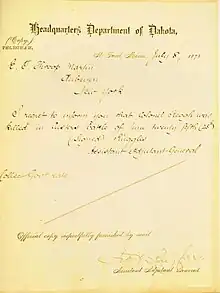 Headquarters Department of Dakota,
(Copy)
TELEGRAM
St. Paul, Minn. July 8th, 187
E. T. Throop Martin
Auburn
New York
I regret to inform you that Colonel Keogh was
killed in Custer's battle of June twenty fifth (25th)
(Signed) Ruggles
Assistant Adjutant General
Official copy respectfully furnished by mail
Assistant Adjutant General